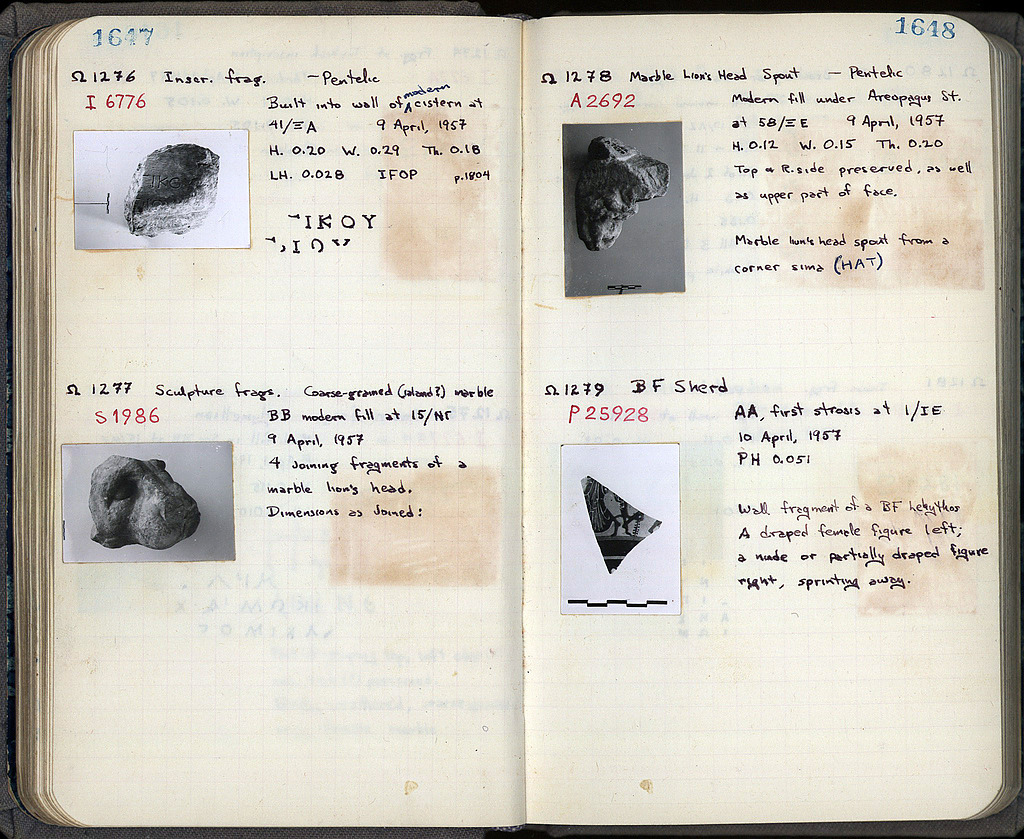 1647
Ω 1276 Inscr. frag. — Pentelic
I 6776
Built into wall of modern cistern at
41/ΞA 9 April, 1957
H. 0.20 W. 0.29 Th. 0.18
LH. 0.028 IFOP p.1804
ΙΚΟΥ
Ω 1277 Sculpture frags. Coarse-grained (island?) marble
S 1986
BB modern fill at 15/ΝΓ
9 April, 1957
4 joining fragments of a
marble lion's head.
Dimensions as joined:
1648
Ω 1278 Marble Lion's Head Spout — Pentelic
A 2692
Modern fill under Areopagus St.
at 58/ΞE 9 April, 1957
H. 0.12 W. 0.15 Th. 0.20
Top & R. side preserved, as well
as upper part of face.
Marble lion's head spout from a
corner sima (HAT)
Ω 1279 BF Sherd
P 25928
AA, first strosis at 1/ΙΕ
10 April, 1957
PH 0.051
Wall fragment of a BF lekythos
A draped female figure left;
a nude or partially draped figure
right, sprinting away.